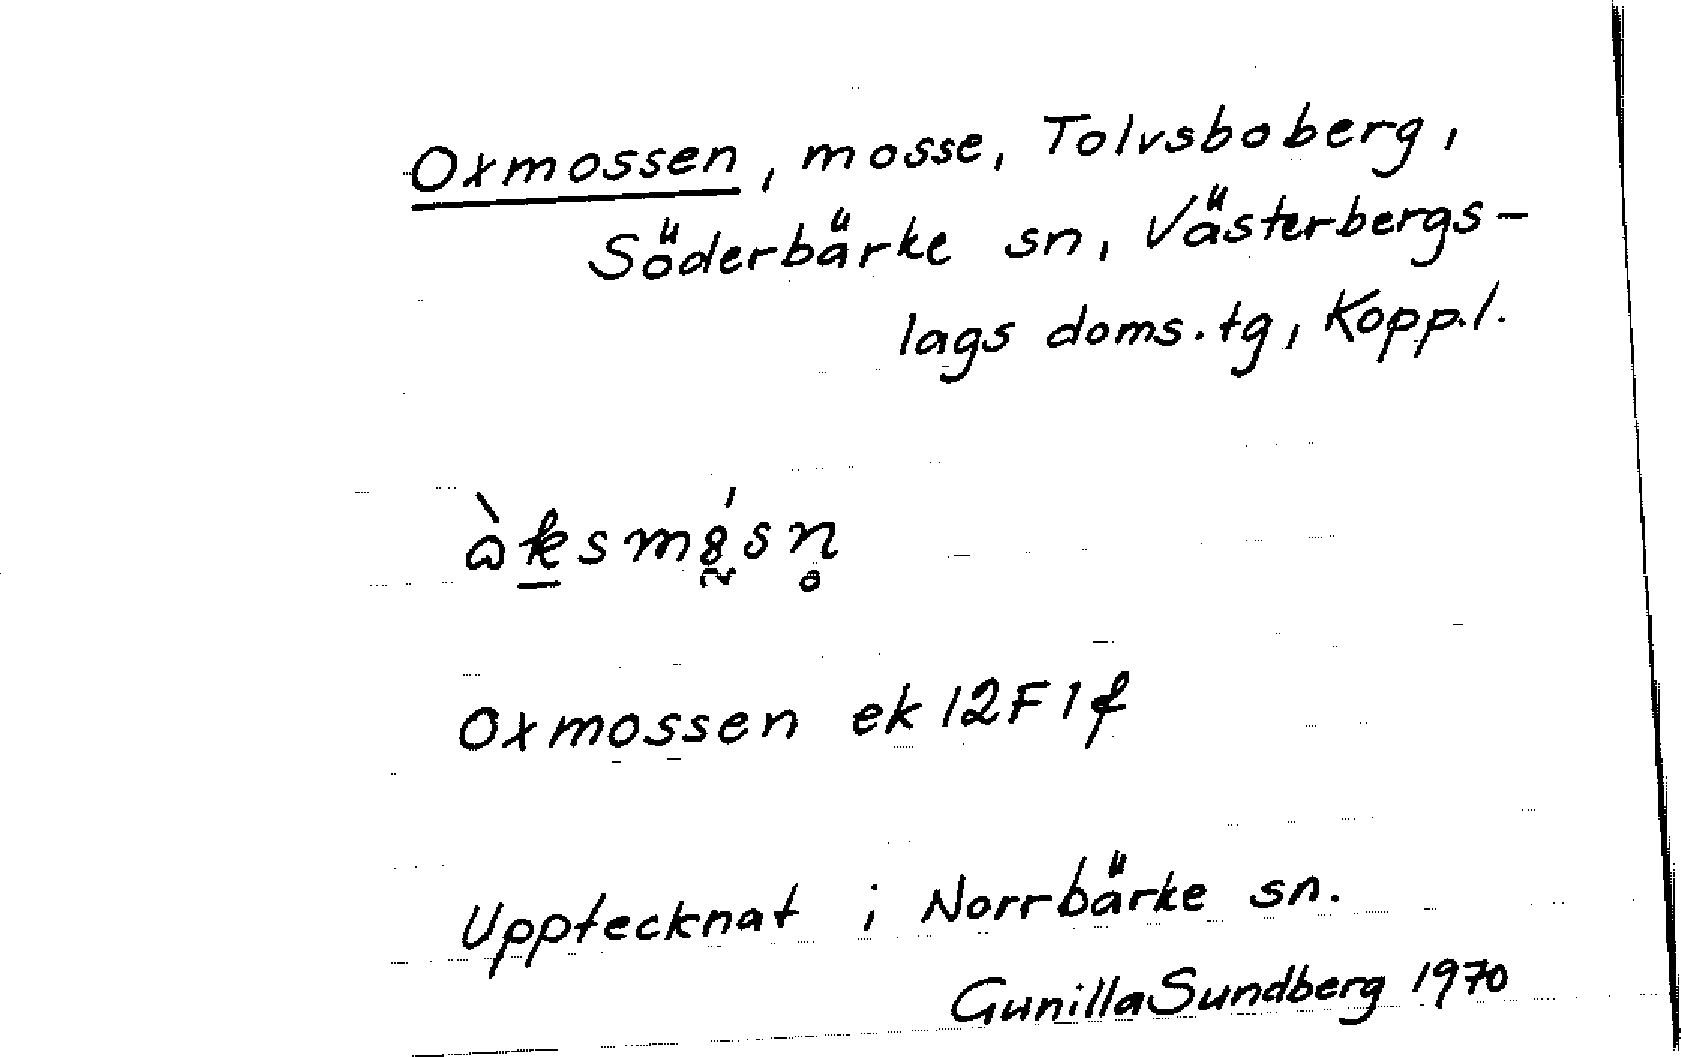 Oxmossen, mosse, Tolvsboberg,
Söderbärke sn, Västerbergs-
lags doms.tg, Kopp.l.
Oxmossen ek 12F1f
Upptecknat i Norrbärke sn.
Gunilla Sundberg 1970